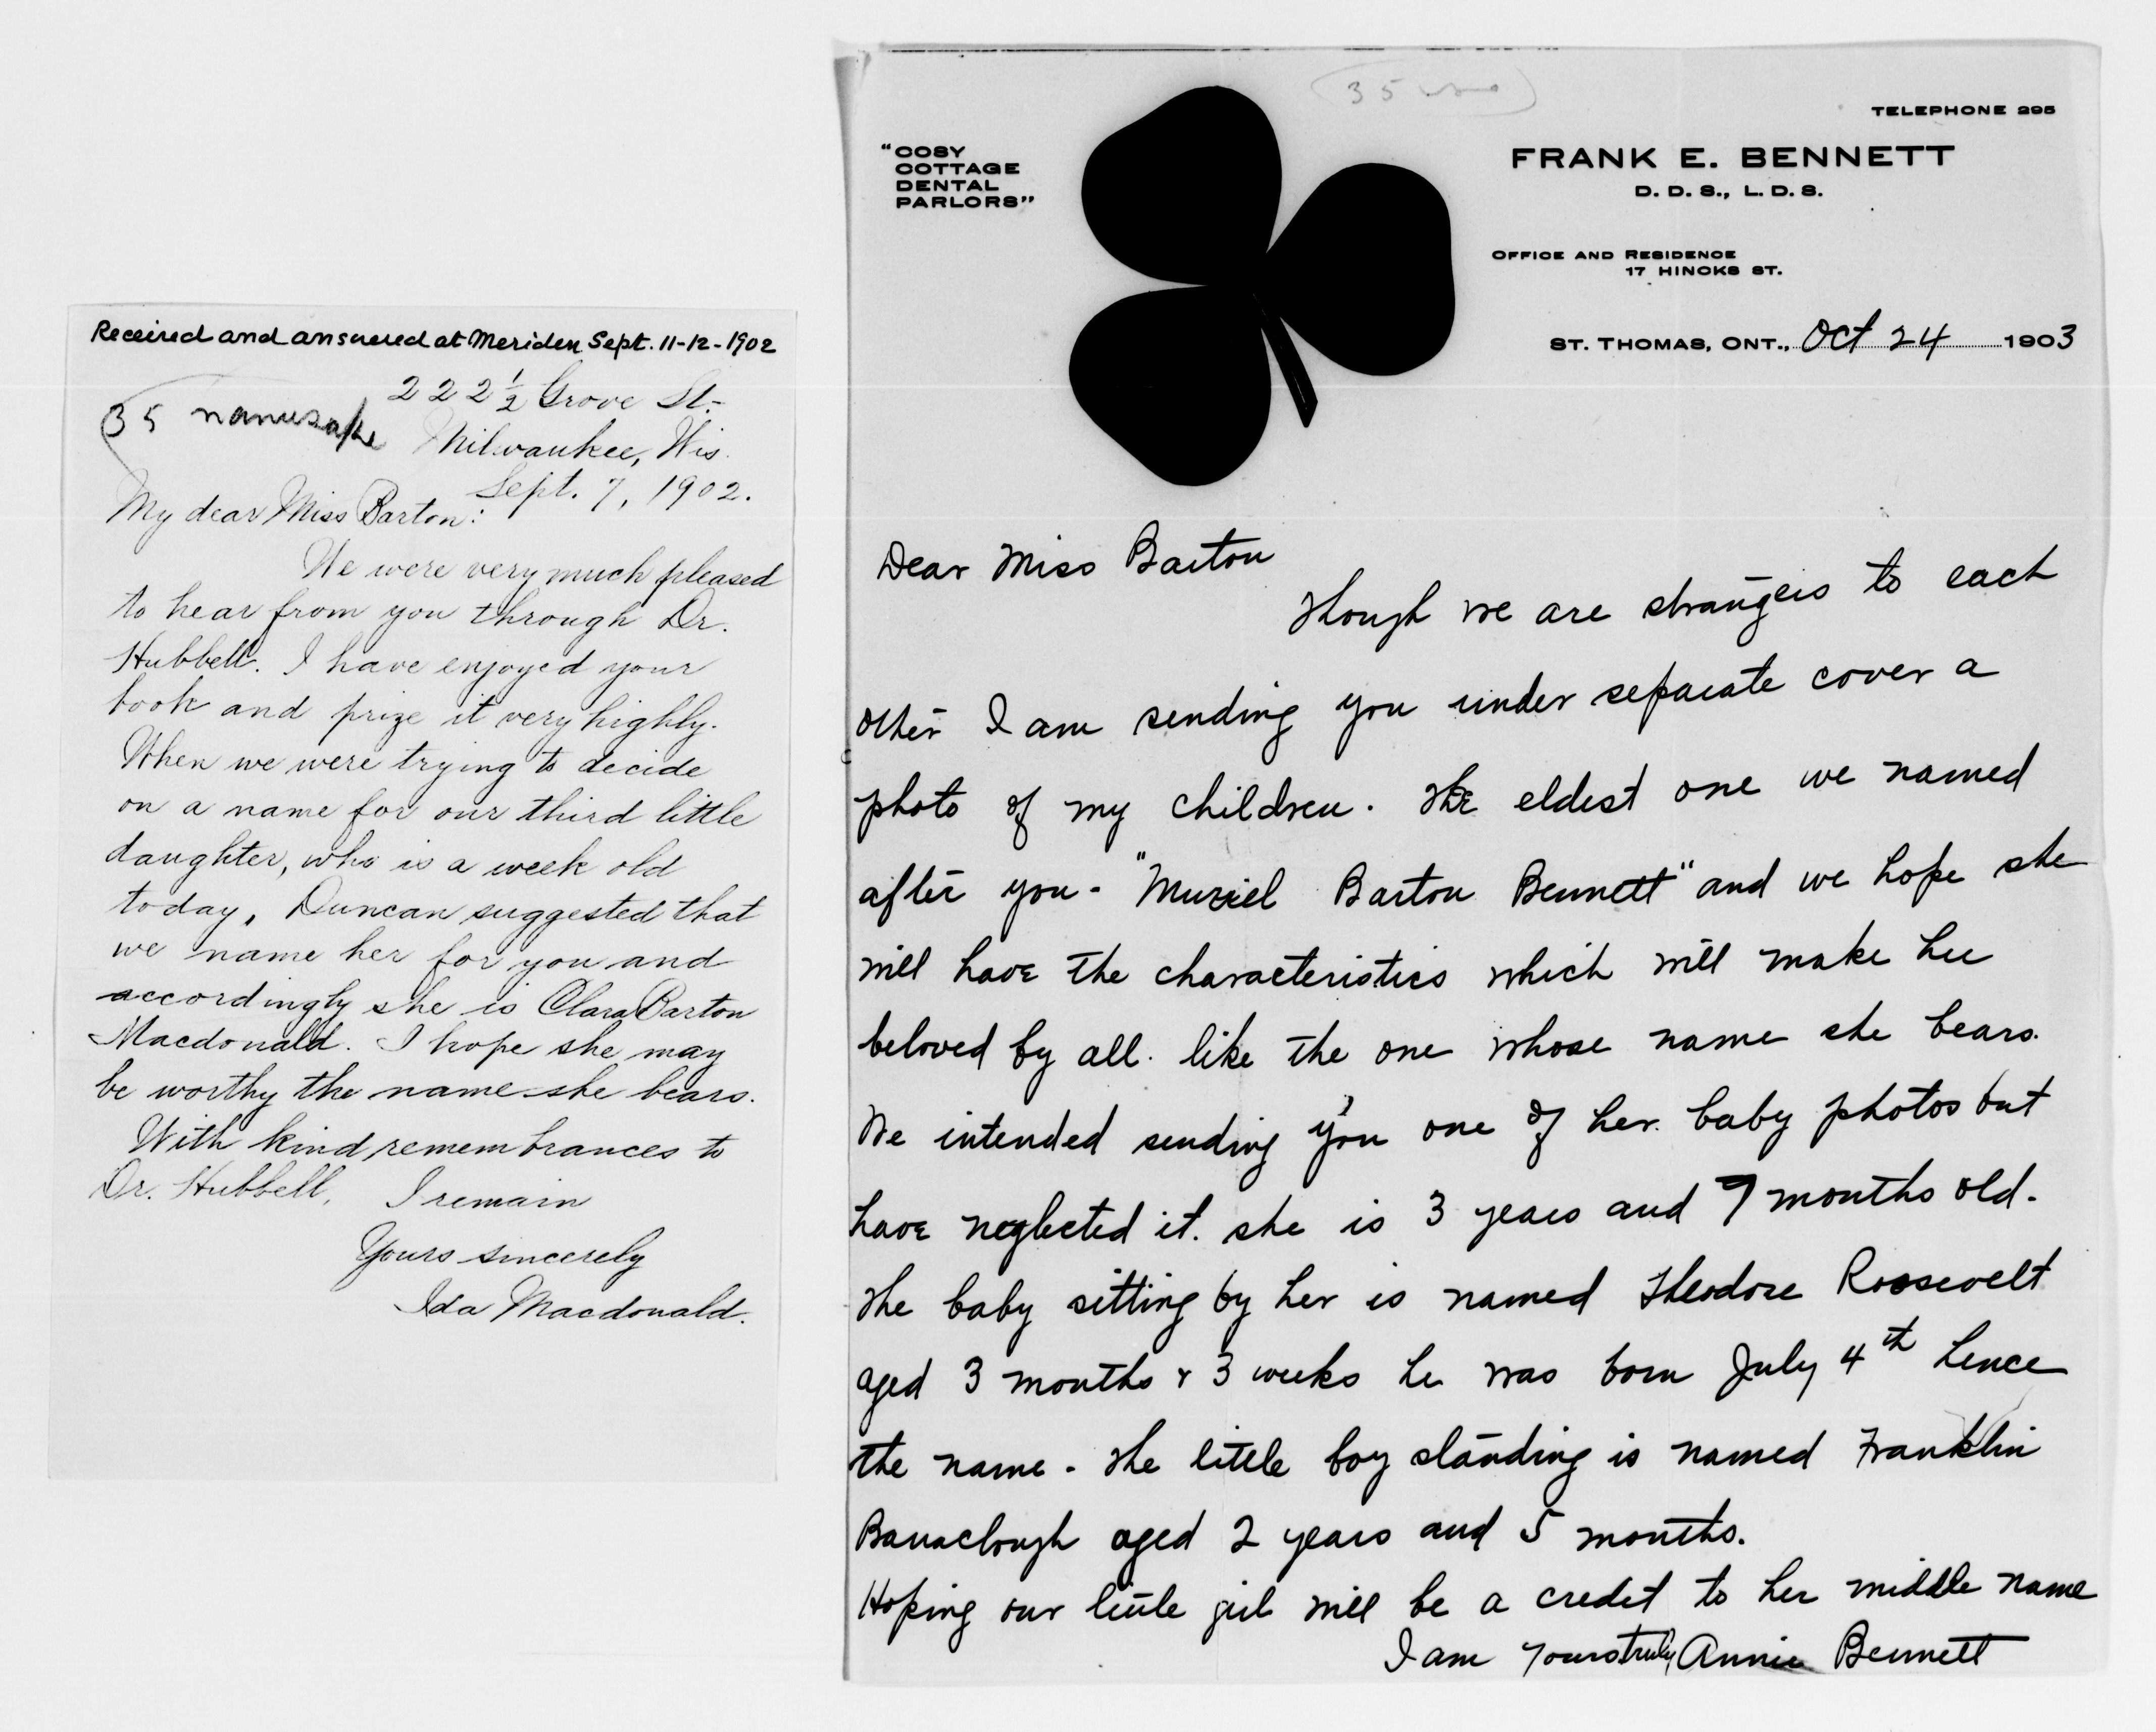 Received and answered at Meriden Sept. 11-12-1902
35 namesake
222 1/2 Grove St.
Milwaukee, Wis.
Sept. 7, 1902.
My dear Miss Barton:
We were very much pleased
to hear from you through Dr.
Hubbell. I have enjoyed your
book and prize it very highly.
When we were trying to decide
on a name for our third little
daughter, who is a week old
today, Duncan suggested that
we name her for you and
accordingly she is Clara Barton
Macdonald. I hope she may
be worthy the name she bears.
With kind remembrances to
Dr. Hubbell, I remain
Yours sincerely
Ida Macdonald.
35
TELEPHONE 295
"COSY
COTTAGE
DENTAL
PARLORS"
FRANK E. BENNETT
D. D. S., L. D. S.
OFFICE AND RESIDENCE
17 HINCKS ST.
ST. THOMAS, ONT., Oct 24 1903
Dear Miss Barton
Though we are strangers to each
other I am sending you under separate cover a
photo of my children. The eldest one we named
after you - "Muriel Barton Bennett" and we hope she
will have the characteristics which will make her
beloved by all. like the one whose name she bears.
We intended sending you one of her baby photos but
have neglected it. she is 3 years and 9 months old.
The baby sitting by her is named Theodore Roosevelt
aged 3 months & 3 weeks he was born July 4th hence
the name - The little boy standing is named Franklin
Barraclough aged 2 years and 5 months.
Hoping our little girl will be a credit to her middle name
I am yours truly, Annie Bennett